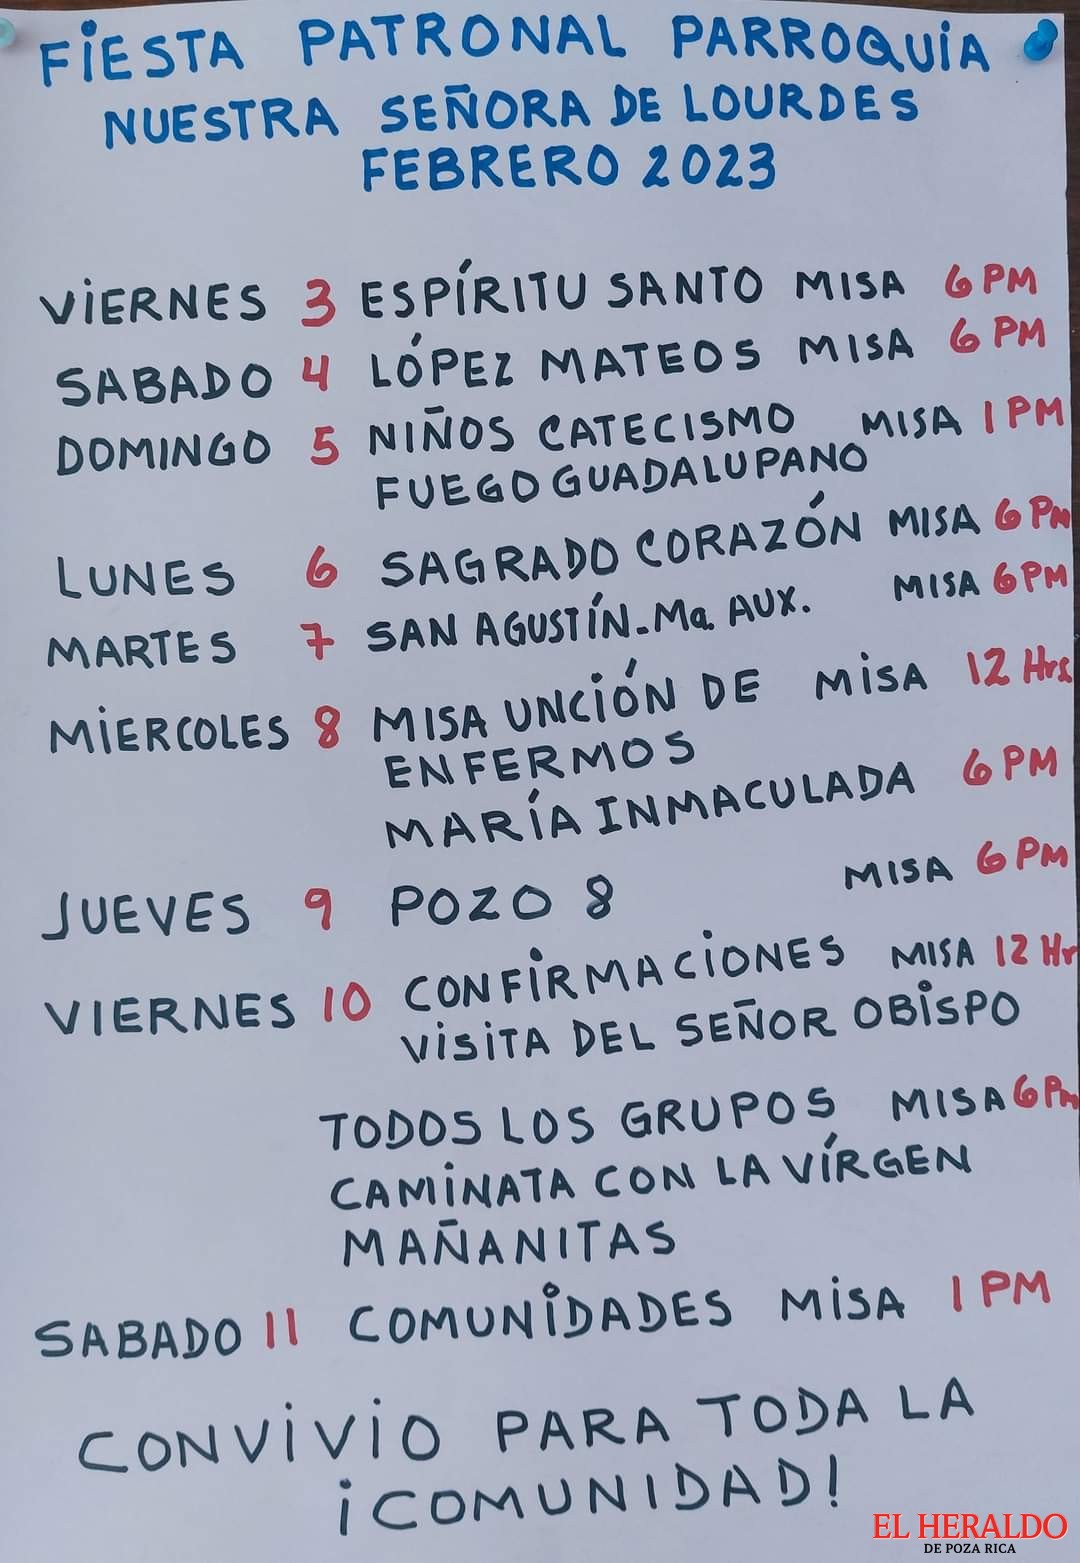 FIESTA PATRONAL PARROQUIA
NUESTRA SEÑORA DE LOURDES
FEBRERO 2023
VIERNES 3 ESPÍRITU SANTO MISA 6 PM
SABADO 4 LÓPEZ MATEOS MISA 6 PM
DOMINGO 5 NIÑOS CATECISMO MISA 1 PM
FUEGO GUADALUPANO
LUNES 6 SAGRADO CORAZÓN MISA 6 PM
MARTES 7 SAN AGUSTÍN-Ma. AUX. MISA 6 PM
MIERCOLES 8 MISA UNCIÓN DE MISA 12 Hrs
ENFERMOS
MARÍA INMACULADA 6 PM
JUEVES 9 POZO 8 MISA 6 PM
VIERNES 10 CONFIRMACIONES MISA 12 Hr
VISITA DEL SEÑOR OBISPO
TODOS LOS GRUPOS MISA 6 Pm
CAMINATA CON LA VÍRGEN
MAÑANITAS
SABADO 11 COMUNIDADES MISA 1 PM
CONVIVIO PARA TODA LA
¡COMUNIDAD!
EL HERALDO
DE POZA RICA